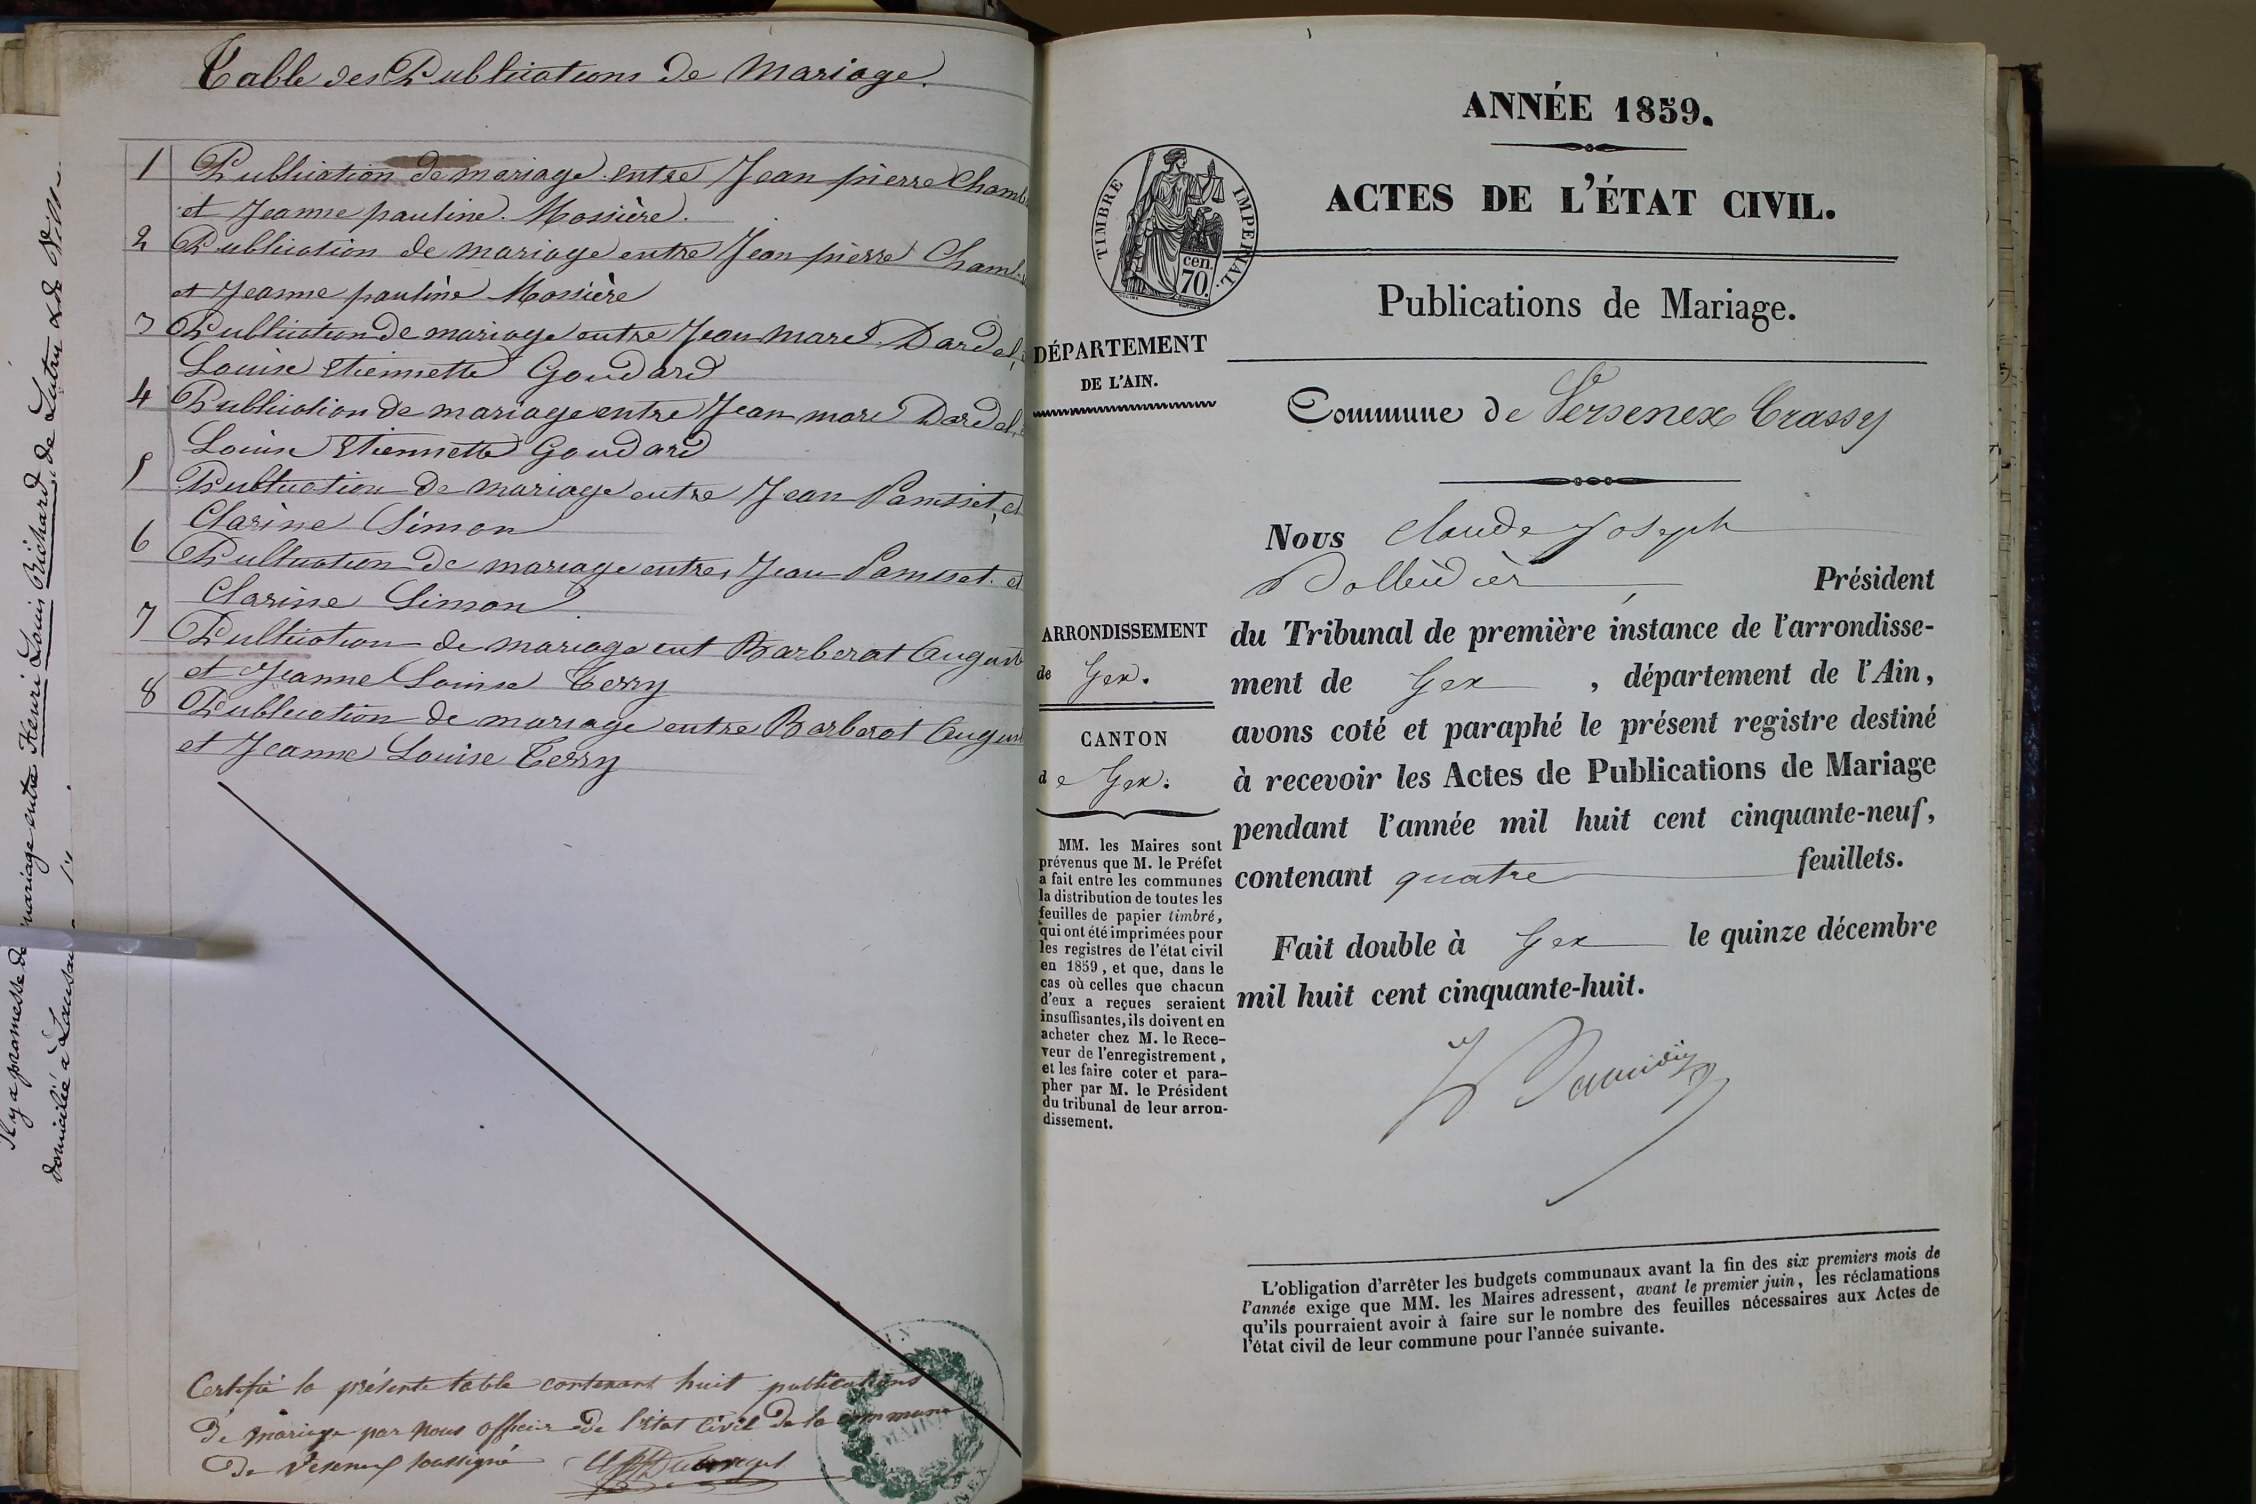 Table des Publications de Mariage.
1 Publication de mariage entre Jean pierre Chamb
et Jeanne pauline Mossière.
2 Publication de mariage entre Jean pierre Chamb
et Jeanne pauline Mossière
3 Publication de mariage entre Jean marc Dardel,
Louise Etiennette Goudard
4 Publication de mariage entre Jean marc Dardel,
Louise Etiennette Goudard
5 Publication de mariage entre Jean et
Clarine Simon
6 Publication de mariage entre Jean et
Clarine Simon
7 Publication de mariage ent Barberat August
et Jeanne Louise Terry
8 Publication de mariage entre Barberat August
et Jeanne Louise Terry
Certifié la présente table contenant huit publications
de mariage par nous officier de l'état Civil de la commune
de soussigné
MAIRIE
Il y a promesse de mariage entre Henri Louis Richard, de Lutry
domicilié à
ANNÉE 1859.
ACTES DE L'ÉTAT CIVIL.
TIMBRE IMPERIAL.
cen.
70.
Publications de Mariage.
DÉPARTEMENT
DE L'AIN.
Commune de Versenex Crassy
Nous Claude Joseph
Président
du Tribunal de première instance de l'arrondisse-
ment de Gex, département de l'Ain,
avons coté et paraphé le présent registre destiné
à recevoir les Actes de Publications de Mariage
pendant l'année mil huit cent cinquante-neuf,
contenant quatre feuillets.
Fait double à Gex le quinze décembre
mil huit cent cinquante-huit.
ARRONDISSEMENT
de Gex.
CANTON
de Gex.
MM. les Maires sont
prévenus que M. le Préfet
a fait entre les communes
la distribution de toutes les
feuilles de papier timbré,
qui ont été imprimées pour
les registres de l'état civil
en 1859, et que, dans le
cas où celles que chacun
d'eux a reçues seraient
insuffisantes, ils doivent en
acheter chez M. le Rece-
veur de l'enregistrement,
et les faire coter et para-
pher par M. le Président
du tribunal de leur arron-
dissement.
L'obligation d'arrêter les budgets communaux avant la fin des six premiers mois de
l'année exige que MM. les Maires adressent, avant le premier juin, les réclamations
qu'ils pourraient avoir à faire sur le nombre des feuilles nécessaires aux Actes de
l'état civil de leur commune pour l'année suivante.